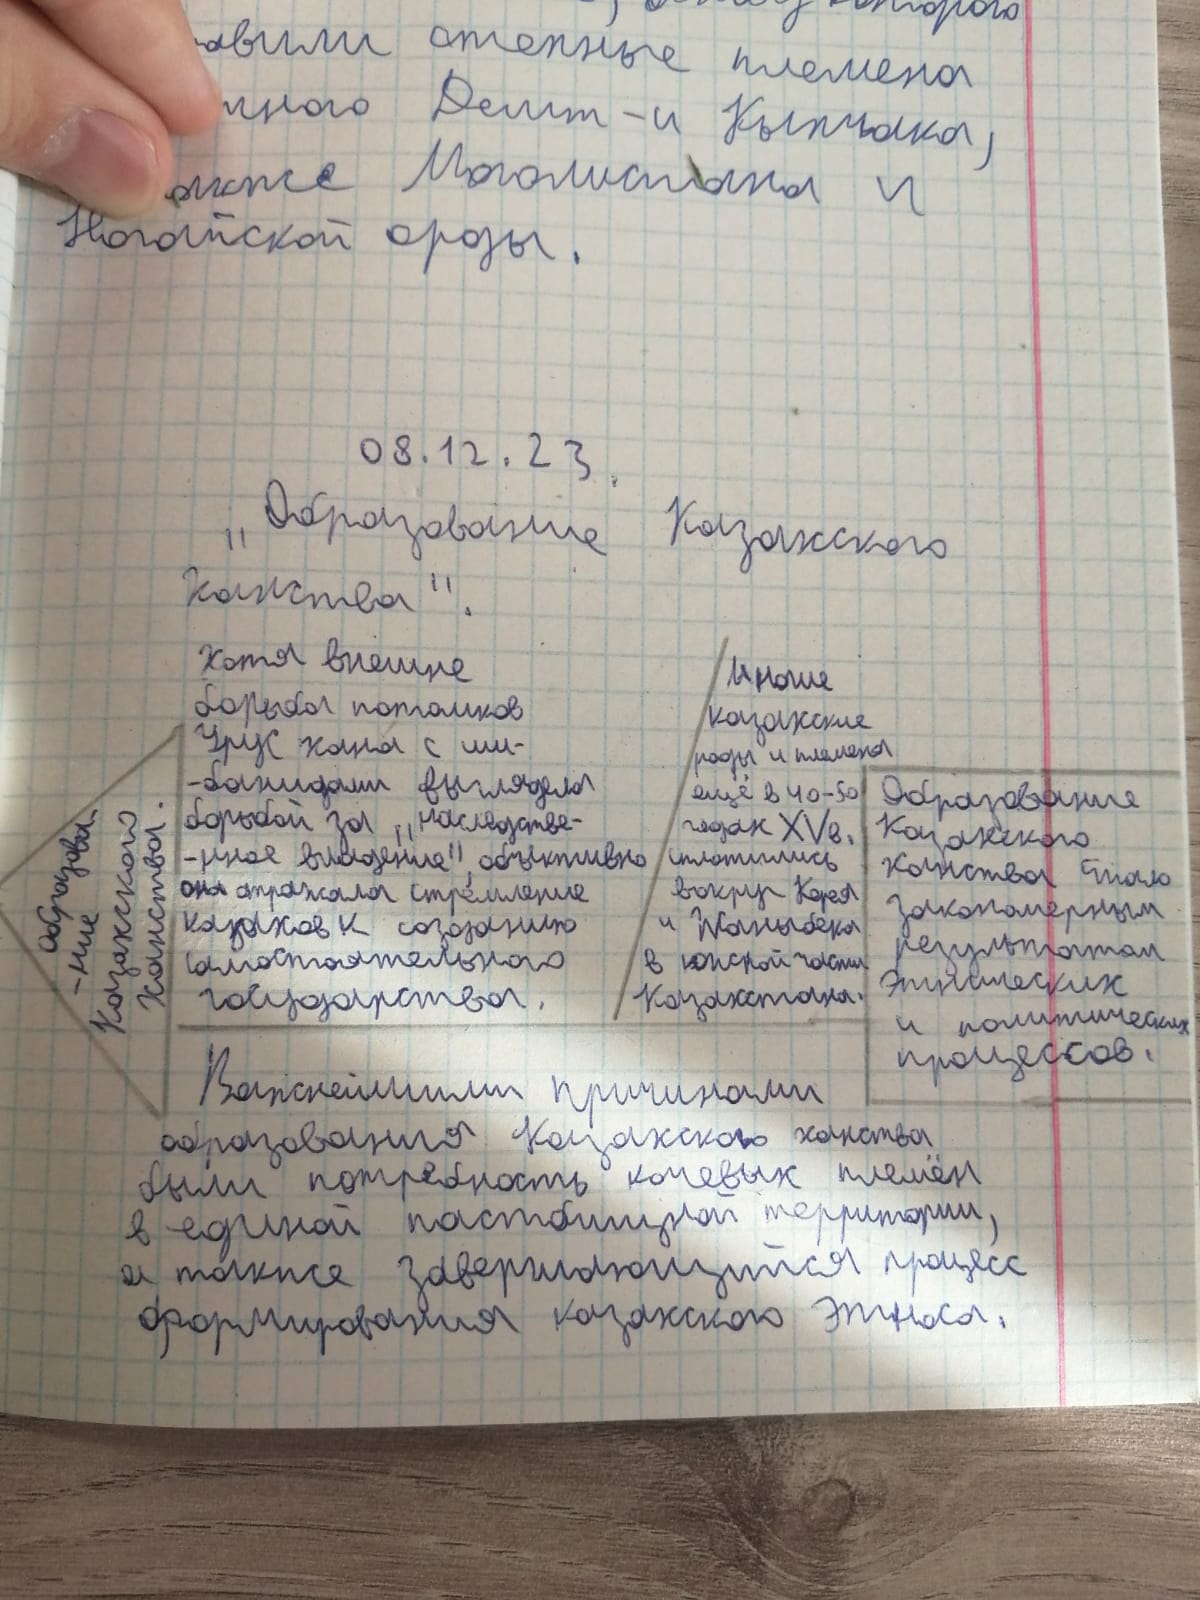 основу которого
авили степные племена
тного Дешт-и Кыпчака,
акже Моголистана и
Ногайской орды.
08.12.23.
„Образование Казахского
ханства".
Образова-
-ние
Казахского
ханства.
Хотя внешне
борьба потомков
Урус хана с ши-
-банидами выглядела
борьбой за „наследстве-
-нное владение", объективно
она отражала стремление
казахов к созданию
самостоятельного
государства.
Иные
казахские
роды и племена
ещё в 40-50
годах XVв.
сплотились
вокруг Керея
и Жаныбека
в южской части
Казахстана.
Образование
Казахского
ханства стало
закономерным
результатом
этнических
и политических
процессов.
Важнейшими причинами
образования Казахского ханства
были потребность кочевых племён
в единой пастбищной территории,
а также завершающийся процесс
формирования казахского этноса.